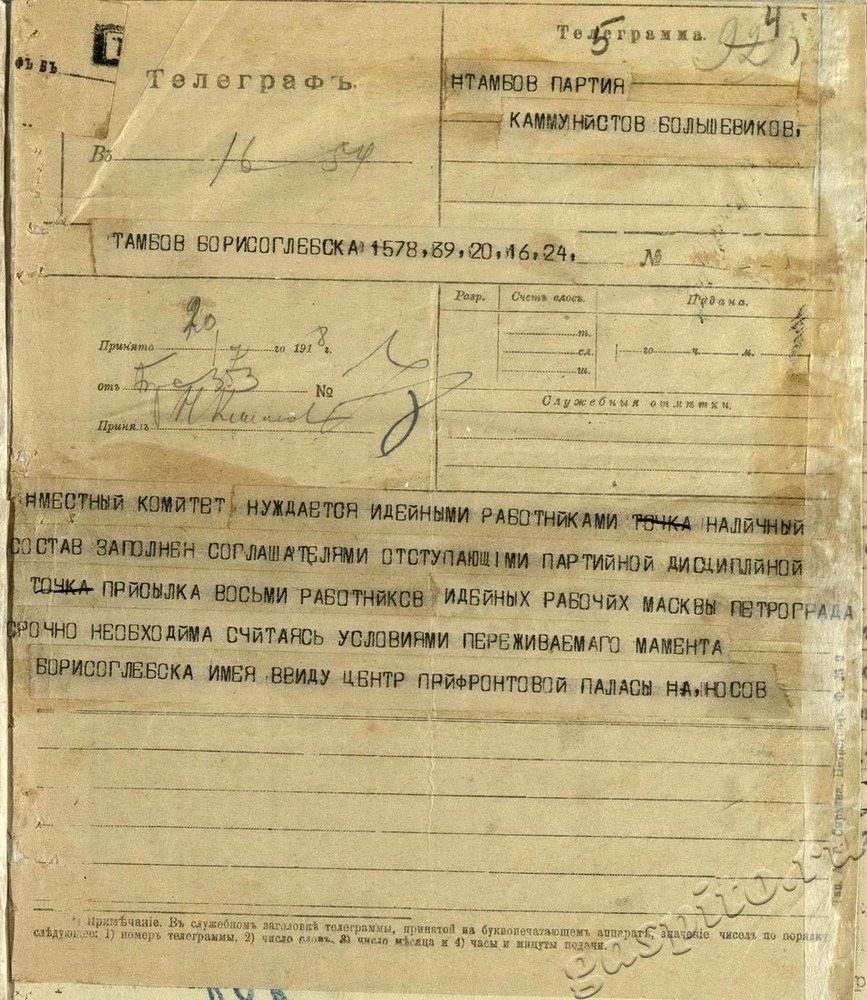 Телеграмма.
5
4
Телеграфъ.
ФЪ ВЪ
НТАМБОВ ПАРТИЯ
КАММУНИСТОВ БОЛЬШЕВИКОВ,
Въ 16 54
ТАМБОВ БОРИСОГЛЕБСКА 1578,39,20,16,24,
№
Разр. Счетъ словъ. Подана.
т.
сл. го ч. м.
ш.
Принята 20 го 1918 г.
отъ 353 №
Принялъ
Служебныя отмѣтки.
НМЕСТНЫЙ КОМИТЕТ НУЖДАЕТСЯ ИДЕЙНЫМИ РАБОТНИКАМИ ТОЧКА НАЛИЧНЫЙ
СОСТАВ ЗАПОЛНЕН СОГЛАШАТЕЛЯМИ ОТСТУПАЮЩІМИ ПАРТИЙНОЙ ДИСЦИПЛИНОЙ
ТОЧКА ПРИСЫЛКА ВОСЬМИ РАБОТНИКОВ ИДЕЙНЫХ РАБОЧИХ МАСКВЫ ПЕТРОГРАДА
СРОЧНО НЕОБХОДИМА СЧИТАЯСЬ УСЛОВИЯМИ ПЕРЕЖИВАЕМАГО МАМЕНТА
БОРИСОГЛЕБСКА ИМЕЯ ВВИДУ ЦЕНТР ПРИФРОНТОВОЙ ПАЛАСЫ НА, НОСОВ
Примѣчаніе. Въ служебномъ заголовкѣ телеграммы, принятой на буквопечатающемъ аппаратѣ, значеніе чиселъ по порядку
слѣдующее: 1) номеръ телеграммы, 2) число словъ, 3) число мѣсяца и 4) часы и минуты подачи.
gaspito.ru